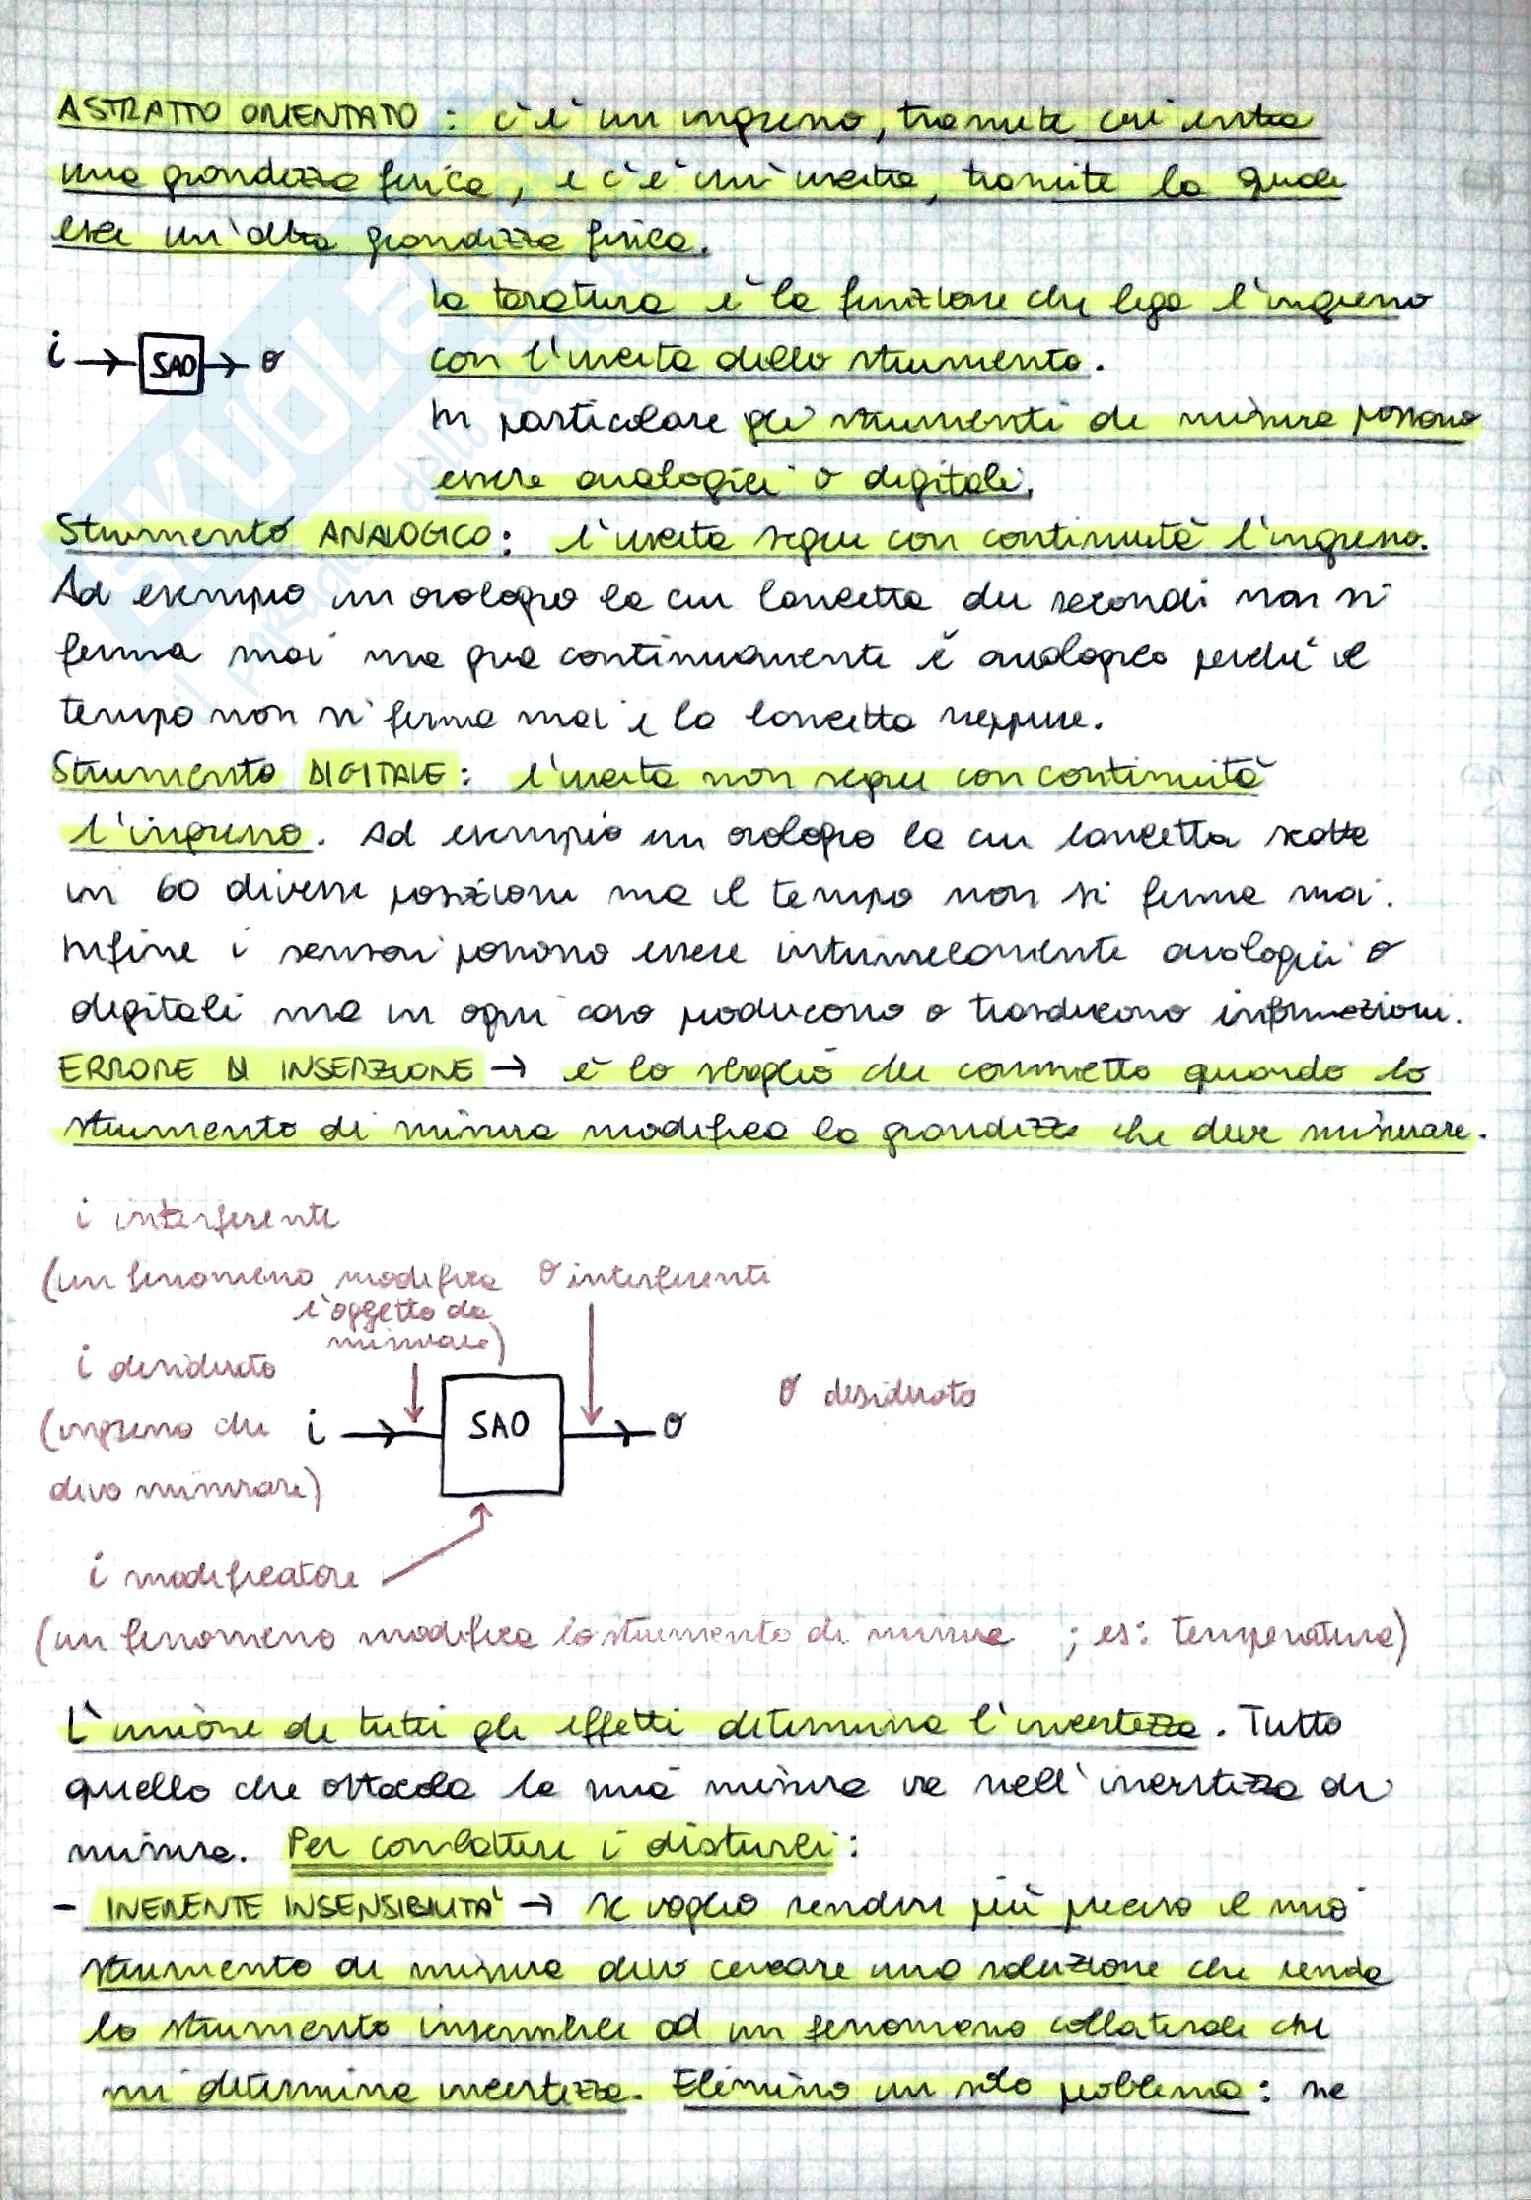 ASTRATTO ORIENTATO : c'è un ingresso, tramite cui entra
una grandezza fisica, e c'è un'uscita, tramite la quale
esce un'altra grandezza fisica.
la taratura è la funzione che lega l'ingresso
i → SAO → o
con l'uscita dello strumento.
In particolare gli strumenti di misura possono
essere analogici o digitali.
Strumento ANALOGICO: l'uscita segue con continuità l'ingresso.
Ad esempio un orologio la cui lancetta dei secondi non si
ferma mai ma gira continuamente è analogico perché il
tempo non si ferma mai e la lancetta neppure.
Strumento DIGITALE: l'uscita non segue con continuità
l'ingresso. Ad esempio un orologio la cui lancetta scatta
in 60 diverse posizioni ma il tempo non si ferma mai.
Infine i sensori possono essere intrinsecamente analogici o
digitali ma in ogni caso producono o trasducono informazioni.
ERRORE DI INSERZIONE → è lo sbaglio che commetto quando lo
strumento di misura modifica la grandezza che deve misurare.
i interferente
(un fenomeno modifica o interferenti
l'oggetto da
misurare)
i desiderato
o desiderato
(ingresso che i → SAO → o
devo misurare)
i modificatore
(un fenomeno modifica lo strumento di misura ; es: temperatura)
L'unione di tutti gli effetti determina l'incertezza. Tutto
quello che ostacola la mia misura va nell'incertezza di
misura. Per combattere i disturbi:
- INERENTE INSENSIBILITA' → se voglio rendere più preciso il mio
strumento di misura devo cercare una soluzione che renda
lo strumento insensibile ad un fenomeno collaterale che
mi determina incertezza. Elimino un solo problema: se
SKUOLA.NET
il paradiso dello studente